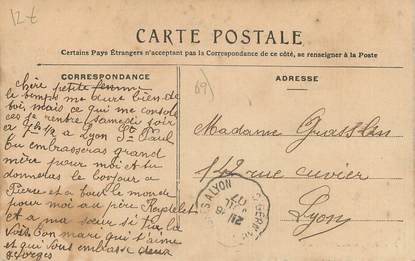 12 €
CARTE POSTALE
Certains Pays Étrangers n'acceptant pas la Correspondance de ce côté, se renseigner à la Poste
CORRESPONDANCE
ADRESSE
69
Chère petite femme
le temps me dure bien de
toi, mais ce qui me console
de rentre samedi soir
a 7h ½ a Lyon St Paul
tu embrasseras grand
mère pour moi et tu
donneras le bonjour a
Pierre et a tout le monde
pour moi au père
et a ma sœur si tu la
vois ton mari qui t'aime
et qui vous embrasse deux
georges
Madame Grasslin
rue cuvier
Lyon
A LYON